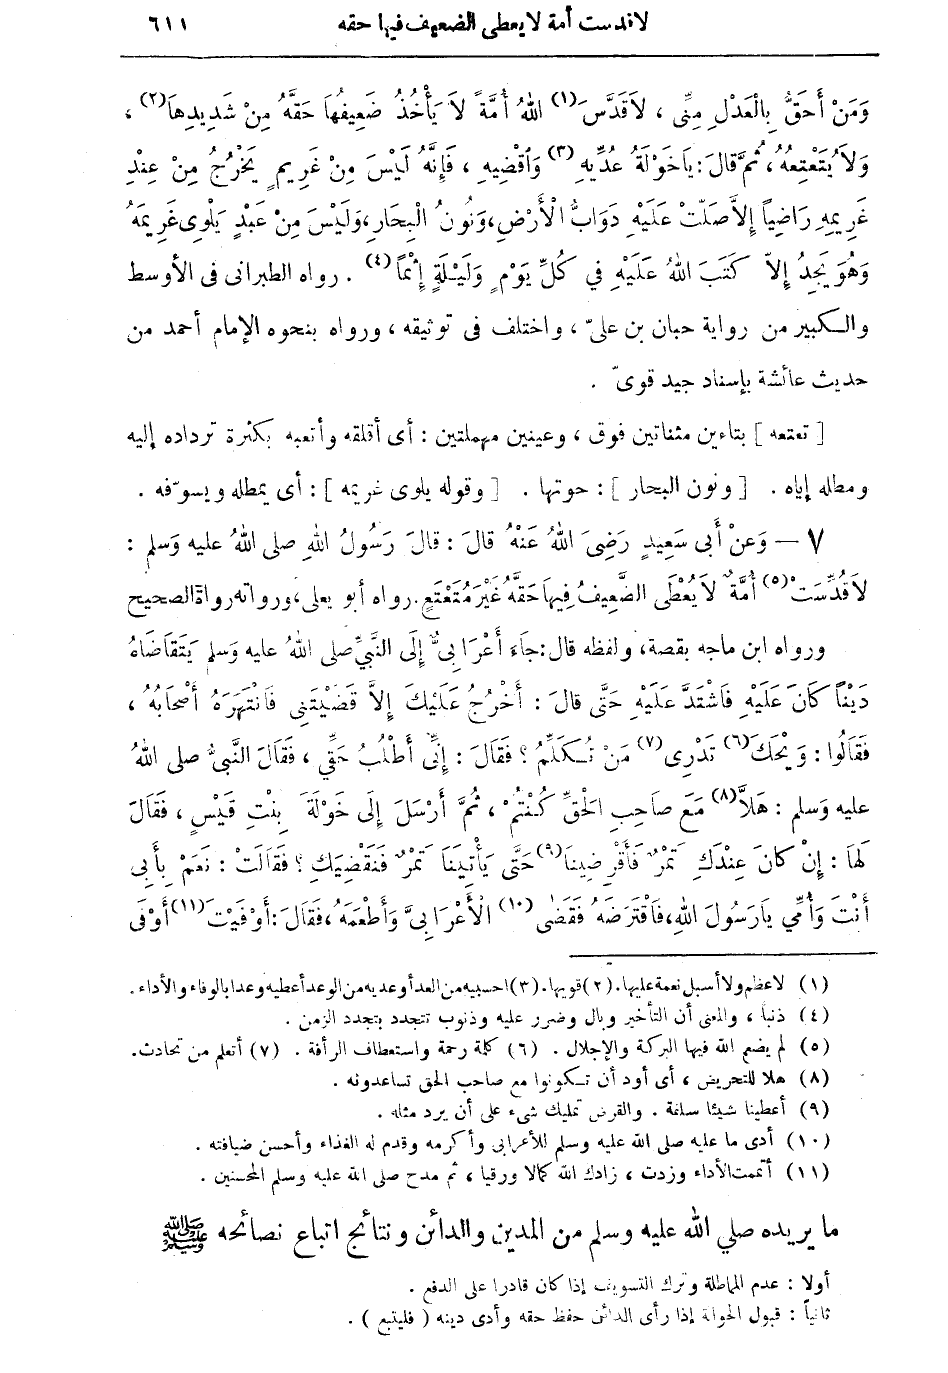 لا قدست أمة لا يعطى الضعيف فيها حقه ٦١١
وَمَنْ أَحَقُّ بِالْعَدْلِ مِنِّى ، لاَ قَدَّسَ (١) اللهُ أُمَّةً لاَ يَأْخُذُ ضَعِيفُهَا حَقَّهُ مِنْ شَدِيدِهَا (٢) ،
وَلاَ يُتَعْتِعُهُ ، ثُمَّ قالَ : يَا خَوْلَةُ عُدِّيهِ (٣) وَاقْضِيهِ ، فَإِنَّهُ لَيْسَ مِنْ غَرِيمٍ يَخْرُجُ مِنْ عِنْدِ
غَرِيمِهِ رَاضِياً إِلاَّ صَلَّتْ عَلَيْهِ دَوَابُّ الْأَرْضِ ، وَنُونُ الْبِحَارِ ، وَلَيْسَ مِنْ عَبْدٍ يَلْوِى غَرِيمَهُ
وَهُوَ يَجِدُ إِلاَّ كَتَبَ اللهُ عَلَيْهِ فِي كُلِّ يَوْمٍ وَلَيْلَةٍ إِثْمًا (٤) . رواه الطبرانى فى الأوسط
والكبير من رواية حبان بن علىّ ، واختلف فى توثيقه ، ورواه بنحوه الإمام أحمد من
حديث عائشة بإسناد جيد قوىّ .
[ تعتعه ] بتاءين مثناتين فوق ، وعينين مهملتين : أى أقلقه وأتعبه بكثرة ترداده إليه
ومطله إياه . [ ونون البحار ] : حوتها . [ وقوله يلوى غريمه ] : أى يمطله ويسوّفه .
٧ — وَعَنْ أَبِى سَعِيدٍ رَضِىَ اللهُ عَنْهُ قالَ : قالَ رَسُولُ اللهِ صلى اللهُ عليه وَسلم :
لاَ قُدِّسَتْ (٥) أُمَّةٌ لاَ يُعْطَى الضَّعِيفُ فِيهَا حَقَّهُ غَيْرَ مُتَعْتَعٍ . رواه أبو يعلى ، ورواته رواة الصحيح
ورواه ابن ماجه بقصة ، ولفظه قال : جَاءَ أَعْرَابِىٌّ إِلَى النَّبِىِّ صلى اللهُ عليه وَسلم يَتَقَاضَاهُ
دَيْنًا كَانَ عَلَيْهِ فَاشْتَدَّ عَلَيْهِ حَتَّى قالَ : أُحَرِّجُ عَلَيْكَ إِلاَّ قَضَيْتَنِى فَانْتَهَرَهُ أَصْحَابُهُ ،
فَقَالُوا : وَيْحَكَ (٦) تَدْرِى (٧) مَنْ تُكَلِّمُ ؟ فَقَالَ : إِنِّى أَطْلُبُ حَقِّي ، فَقَالَ النَّبِىُّ صلى اللهُ
عليه وَسلم : هَلاَّ (٨) مَعَ صَاحِبِ الْحَقِّ كُنْتُمْ ، ثُمَّ أَرْسَلَ إِلَى خَوْلَةَ بِنْتِ قَيْسٍ ، فَقَالَ
لَهَا : إِنْ كَانَ عِنْدَكِ تَمْرٌ فَأَقْرِضِينَا (٩) حَتَّى يَأْتِيَنَا تَمْرٌ فَنَقْضِيَكِ ؟ فَقَالَتْ : نَعَمْ بِأَبِى
أَنْتَ وَأُمِّي يَا رَسُولَ اللهِ ، فَاقْتَرَضَهُ فَقَضَى (١٠) الْأَعْرَابِىَّ وَأَطْعَمَهُ ، فَقَالَ : أَوْفَيْتَ (١١) أَوْفَى
(١) لا عظم ولا أسبل نعمة عليها . (٢) قويها . (٣) احسبيه من العد أو عديه من الوعد أعطيه وعدا بالوفاء والأداء .
(٤) ذنباً ، والمعنى أن التأخير وبال وضرر عليه وذنوب تتجدد بتجدد الزمن .
(٥) لم يضع الله فيها البركة والإجلال . (٦) كلمة رحمة واستعطاف الرأفة . (٧) أتعلم من تحادث .
(٨) هلا للتحريض ، أى أود أن تكونوا مع صاحب الحق تساعدونه .
(٩) أعطينا شيئا سلفة . والقرض تمليك شىء على أن يرد مثله .
(١٠) أدى ما عليه صلى الله عليه وسلم للأعرابى وأكرمه وقدم له الغذاء وأحسن ضيافته .
(١١) أتممت الأداء وزدت ، زادك الله كمالا ورقيا ، ثم مدح صلى الله عليه وسلم المحسنين .
ما يريده صلي الله عليه وسلم من المدين والدائن ونتائج اتباع نصائحه ﷺ
أولا : عدم المماطلة وترك التسويف إذا كان قادرا على الدفع .
ثانياً : قبول الحوالة إذا رأى الدائن حفظ حقه وأدى دينه ( فليتبع ) .